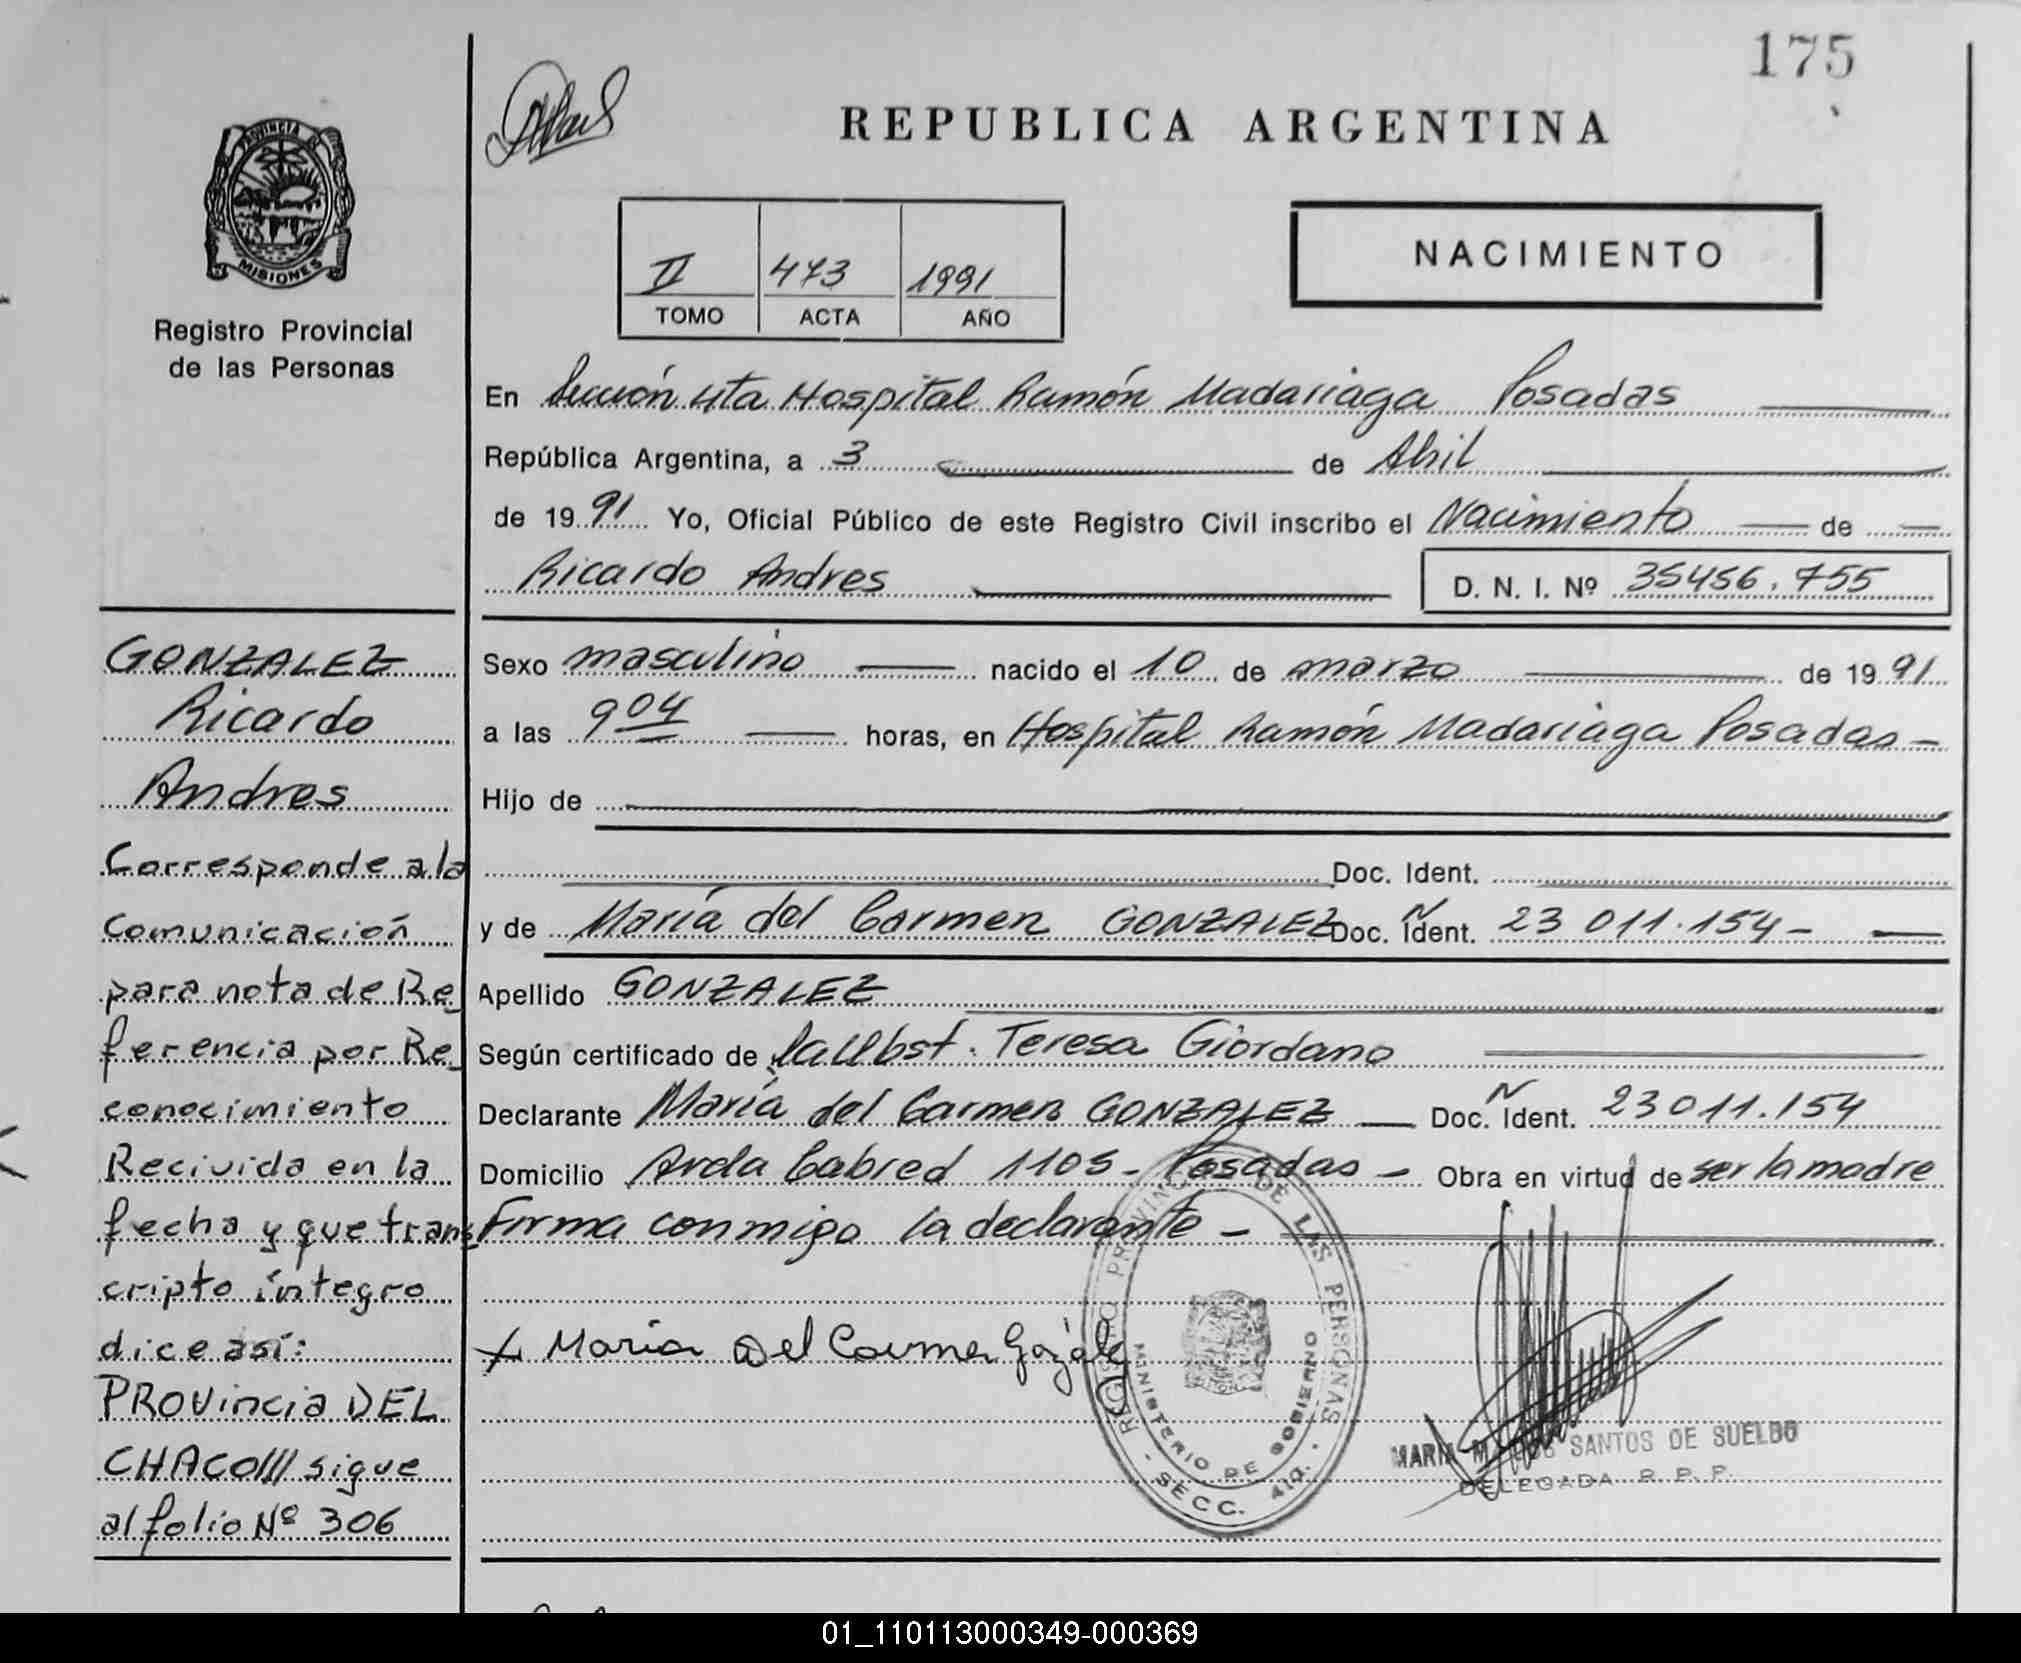 175
REPUBLICA ARGENTINA
PROVINCIA DE
MISIONES
Registro Provincial
de las Personas
II 473 1991
TOMO ACTA AÑO
NACIMIENTO
En Sección 4ta Hospital Ramón Madariaga Posadas
República Argentina, a 3 de Abril
de 1991 Yo, Oficial Público de este Registro Civil inscribo el Nacimiento de
Ricardo Andres D. N. I. Nº 35456.755
Sexo masculino nacido el 10 de marzo de 1991
a las 9 04 horas, en Hospital Ramón Madariaga Posadas -
Hijo de
Doc. Ident.
y de María del Carmen GONZALEZ Doc. N Ident. 23 011.154 -
Apellido GONZALEZ
Según certificado de Teresa Giordano
Declarante María del Carmen GONZALEZ Doc. N Ident. 23011.154
Domicilio Avda Cabred 1105 - Posadas - Obra en virtud de ser la madre
Firma conmigo la declarante -
X Maria Del Carmen Gozález
REGISTRO PROVINCIAL DE LAS PERSONAS
MINISTERIO DE GOBIERNO
- SECC. 4ta. -
MARIA SANTOS DE SUELDO
DELEGADA R. P. P.
GONZALEZ
Ricardo
Andres
Corresponde a la
Comunicación
para nota de Re_
ferencia por Re_
conocimiento
Recivida en la
fecha y que trans
cripto íntegro
dice así:
PROVincia DEL
CHACO/// sigue
al folio Nº 306
01_110113000349-000369